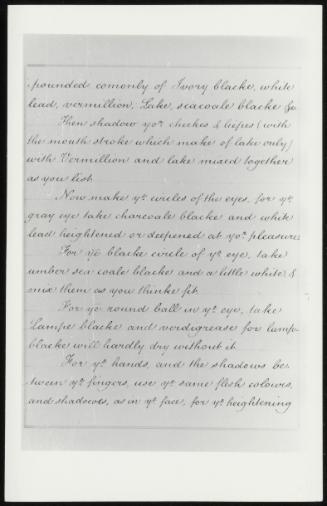 pounded comonly of Ivory blacke, white
lead, vermillion, Lake, seacoale blacke &c
Then shadow yor cheekes & leppes (with
the mouth stroke which make of lake only)
with Vermillion and lake mixed together
as you list.
Now make ye circles of the eyes, for ye
gray eye take charcoale blacke and white
lead heightened or deepened at yor pleasure.
For ye blacke circle of ye eye, take
umber sea coale blacke and a little white &
mix them as you thinke fit.
For ye round ball in ye eye, take
Lampe blacke and verdigrease for lamp
blacke will hardly dry without it.
For ye hands, and the shadows be
tween ye fingers, use ye same flesh colours,
and shadowes, as in ye face, for ye heightening